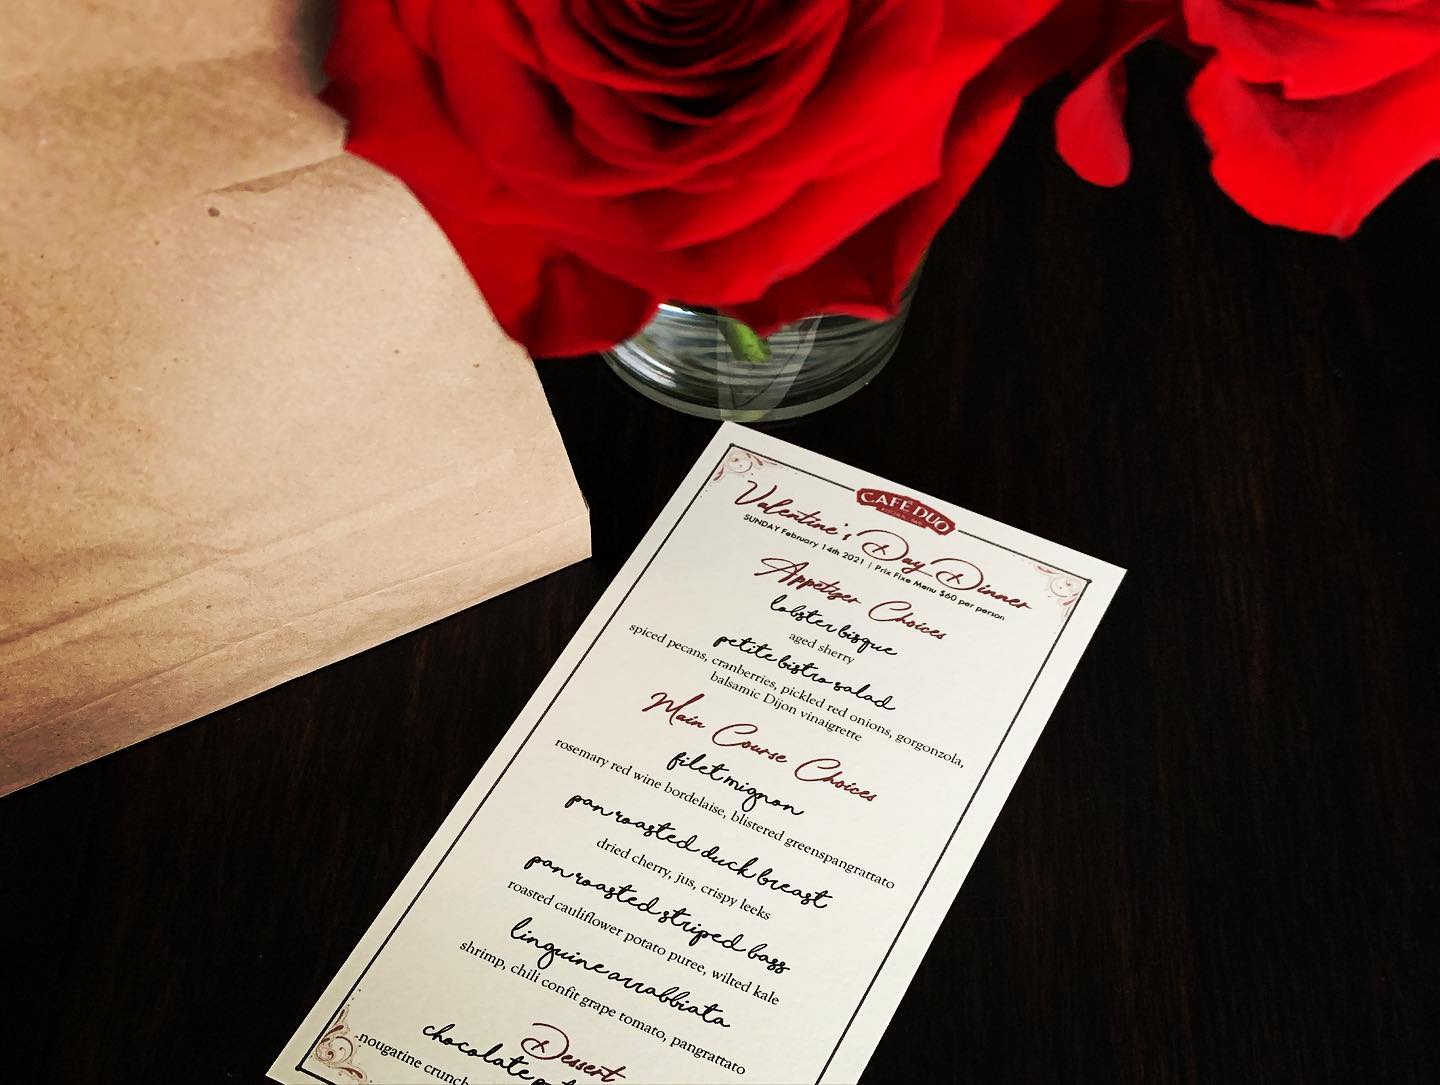 CAFÉ DUO
Valentine's Day Dinner
SUNDAY February 14th 2021 | Prix Fixe Menu $60 per person
Appetizer Choices
lobster bisque
aged sherry
petite bistro salad
spiced pecans, cranberries, pickled red onions, gorgonzola,
balsamic Dijon vinaigrette
Main Course Choices
filet mignon
rosemary red wine bordelaise, blistered greenspangrattato
pan roasted duck breast
dried cherry, jus, crispy leeks
pan roasted striped bass
roasted cauliflower potato puree, wilted kale
linguine arrabbiata
shrimp, chili confit grape tomato, pangrattato
Dessert
chocolate
-nougatine crunch